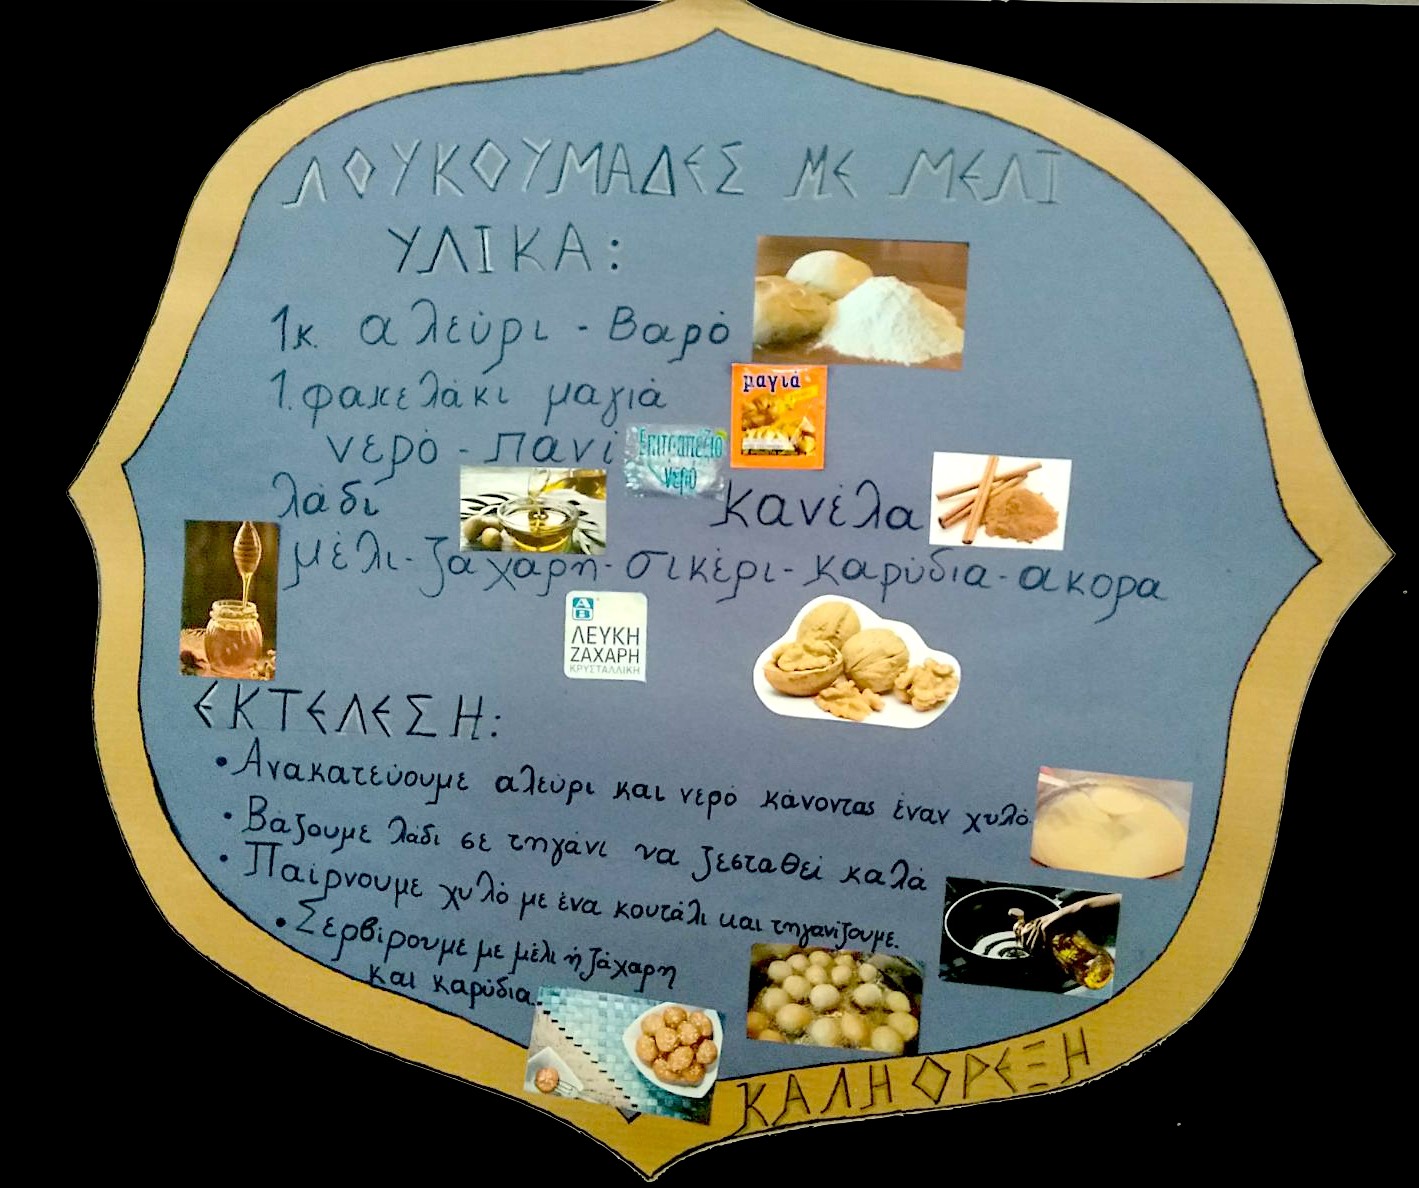 ΛΟΥΚΟΥΜΑΔΕΣ ΜΕ ΜΕΛΙ
ΥΛΙΚΑ:
1κ. αλεύρι - Βαρό
1.φακελάκι μαγιά
μαγιά
νερό - πανί
Επιτραπέζιο
νερό
λάδι
κανέλα
μέλι-ζαχαρη-σικέρι-καρύδια-ακορα
ΑΒ
ΛΕΥΚΗ
ΖΑΧΑΡΗ
ΚΡΥΣΤΑΛΛΙΚΗ
ΕΚΤΕΛΕΣΗ:
• Ανακατεύουμε αλεύρι και νερό κάνοντας έναν χυλό.
• Βάζουμε λάδι σε τηγάνι να ζεσταθεί καλά
• Παίρνουμε χυλό με ένα κουτάλι και τηγανίζουμε.
• Σερβίρουμε με μέλι ή ζάχαρη
και καρύδια.
ΚΑΛΗ ΟΡΕΞΗ